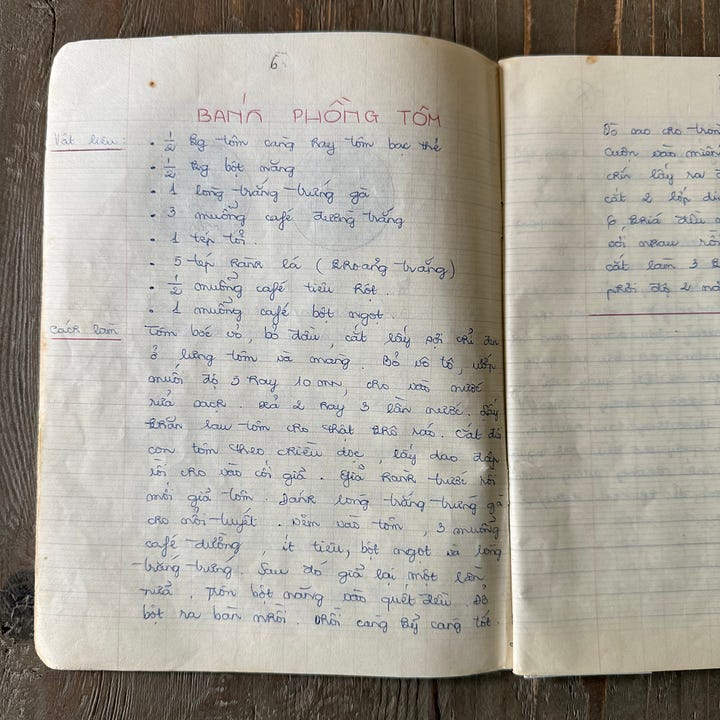 6
BÁNH PHỒNG TÔM
Vật liệu :
• 1/2 kg tôm càng hay tôm bạc thẻ
• 1/2 kg bột năng
• 1 lòng trắng trứng gà
• 3 muổng café đường trắng
• 1 tép tỏi.
• 5 tép hành lá (khoảng trắng)
• 1/2 muổng café tiêu hột.
• 1 muổng café bột ngọt.
Cách làm
Tôm bóc vỏ, bỏ đầu, cắt lấy sợi chỉ đen
ở lưng tôm và mang. Bỏ vô tô, ướp
muối độ 5 hay 10 mn, cho vào nước
rửa sạch. Xả 2 hay 3 lần nước. Lấy
khăn lau tôm cho thật khô ráo. Cắt đôi
con tôm theo chiều dọc, lấy dao đập
rồi cho vào cối giã. Giã hành trước rồi
mới giã tôm. Đánh lòng trắng trứng gà
cho nổi tuyết. Nêm vào tôm, 3 muổng
café đường, ít tiêu, bột ngọt và lòng
trắng trứng. Sau đó giã lại một lần
nữa. Trộn bột năng vào quết đều. Đổ
bột ra bàn nhồi. Nhồi càng kỹ càng tốt.
cho tron
cuôn vào miên
chín lấy ra
cắt 2 lớp
6 khía đều
với nhau rồi
cắt làm 3
phơi độ 2